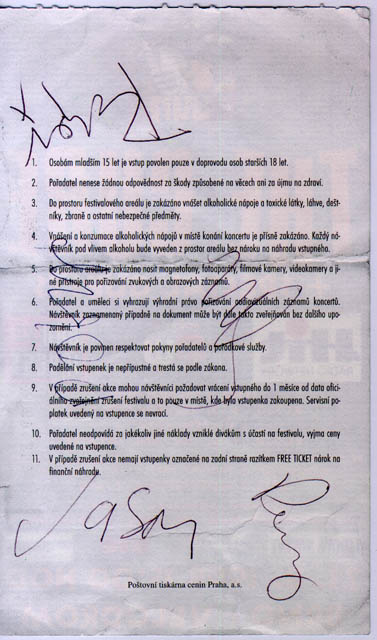 1. Osobám mladším 15 let je vstup povolen pouze v doprovodu osob starších 18 let.
2. Pořadatel nenese žádnou odpovědnost za škody způsobené na věcech ani za újmu na zdraví.
3. Do prostoru festivalového areálu je zakázáno vnášet alkoholické nápoje a toxické látky, láhve, dešt-
níky, zbraně a ostatní nebezpečné předměty.
4. Vnášení a konzumace alkoholických nápojů v místě konání koncertu je přísně zakázáno. Každý ná-
vštěvník pod vlivem alkoholu bude vyveden z prostor areálu bez nároku na náhradu vstupného.
5. Do prostoru areálu je zakázáno nosit magnetofony, fotoaparáty, filmové kamery, videokamery a ji-
né přístroje pro pořizování zvukových a obrazových záznamů.
6. Pořadatel a umělci si vyhrazují výhradní právo pořizování audiovizuálních záznamů koncertů.
Návštěvník zaznamenaný případně na dokument může být dále takto zveřejňován bez dalšího upo-
zornění.
7. Návštěvník je povinen respektovat pokyny pořadatelů a pořádkové služby.
8. Padělání vstupenek je nepřípustné a trestá se podle zákona.
9. V případě zrušení akce mohou návštěvníci požadovat vrácení vstupného do 1 měsíce od data ofici-
álního zveřejnění zrušení festivalu a to pouze v místě, kde byla vstupenka zakoupena. Servisní po-
platek uvedený na vstupence se nevrací.
10. Pořadatel neodpovídá za jakékoliv jiné náklady vzniklé divákům s účastí na festivalu, vyjma ceny
uvedené na vstupence.
11. V případě zrušení akce nemají vstupenky označené na zadní straně razítkem FREE TICKET nárok na
finanční náhradu.
Jason
Poštovní tiskárna cenin Praha, a.s.